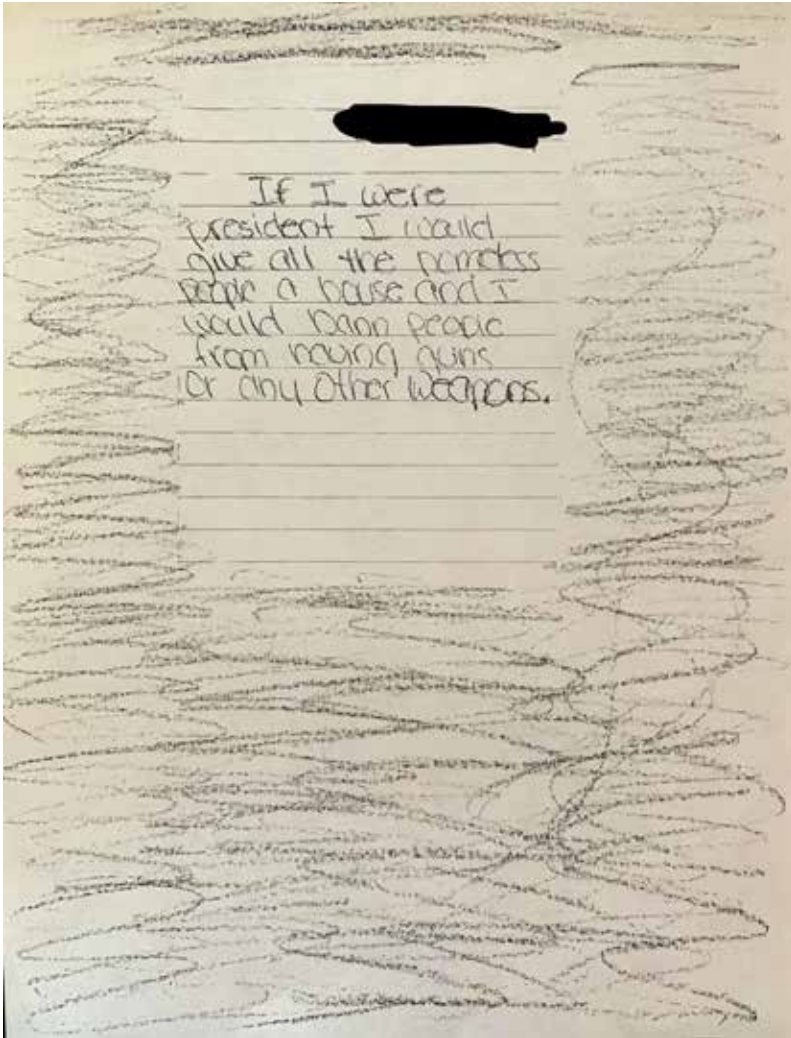 If I were
president I would
give all the homeless
people a house and I
would bann people
from having guns
Or any Other Weapons.